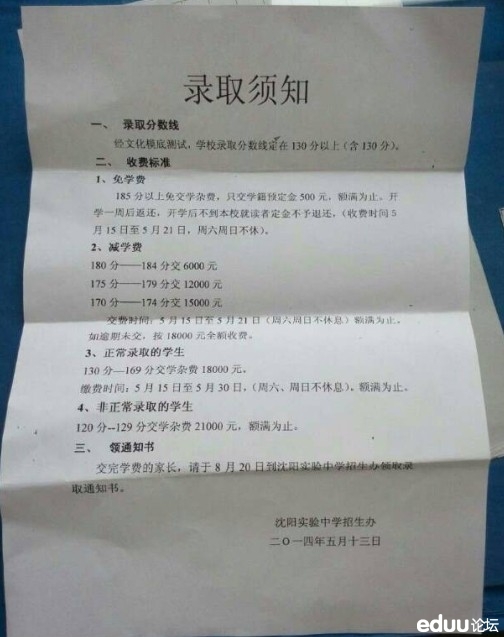 录取须知
一、 录取分数线
经文化模底测试，学校录取分数线定在 130 分以上（含 130 分）。
二、 收费标准
1、免学费
185 分以上免交学杂费，只交学籍预定金 500 元，额满为止。开
学一周后返还，开学后不到本校就读者定金不予退还，（收费时间 5
月 15 日至 5 月 21 日，周六周日不休）。
2、减学费
180 分——184 分交 6000 元
175 分——179 分交 12000 元
170 分——174 分交 15000 元
交费时间：5 月 15 日至 5 月 21 日（周六周日不休息）额满为止。
如逾期未交，按 18000 元全额收费。
3、正常录取的学生
130 分—169 分交学杂费 18000 元，
缴费时间：5 月 15 日至 5 月 30 日，（周六、周日不休息），额满为止。
4、非正常录取的学生
120 分--129 分交学杂费 21000 元，额满为止。
三、 领通知书
交完学费的家长，请于 8 月 20 日到沈阳实验中学招生办领取录
取通知书。
沈阳实验中学招生办
二〇一四年五月十三日
eduu论坛